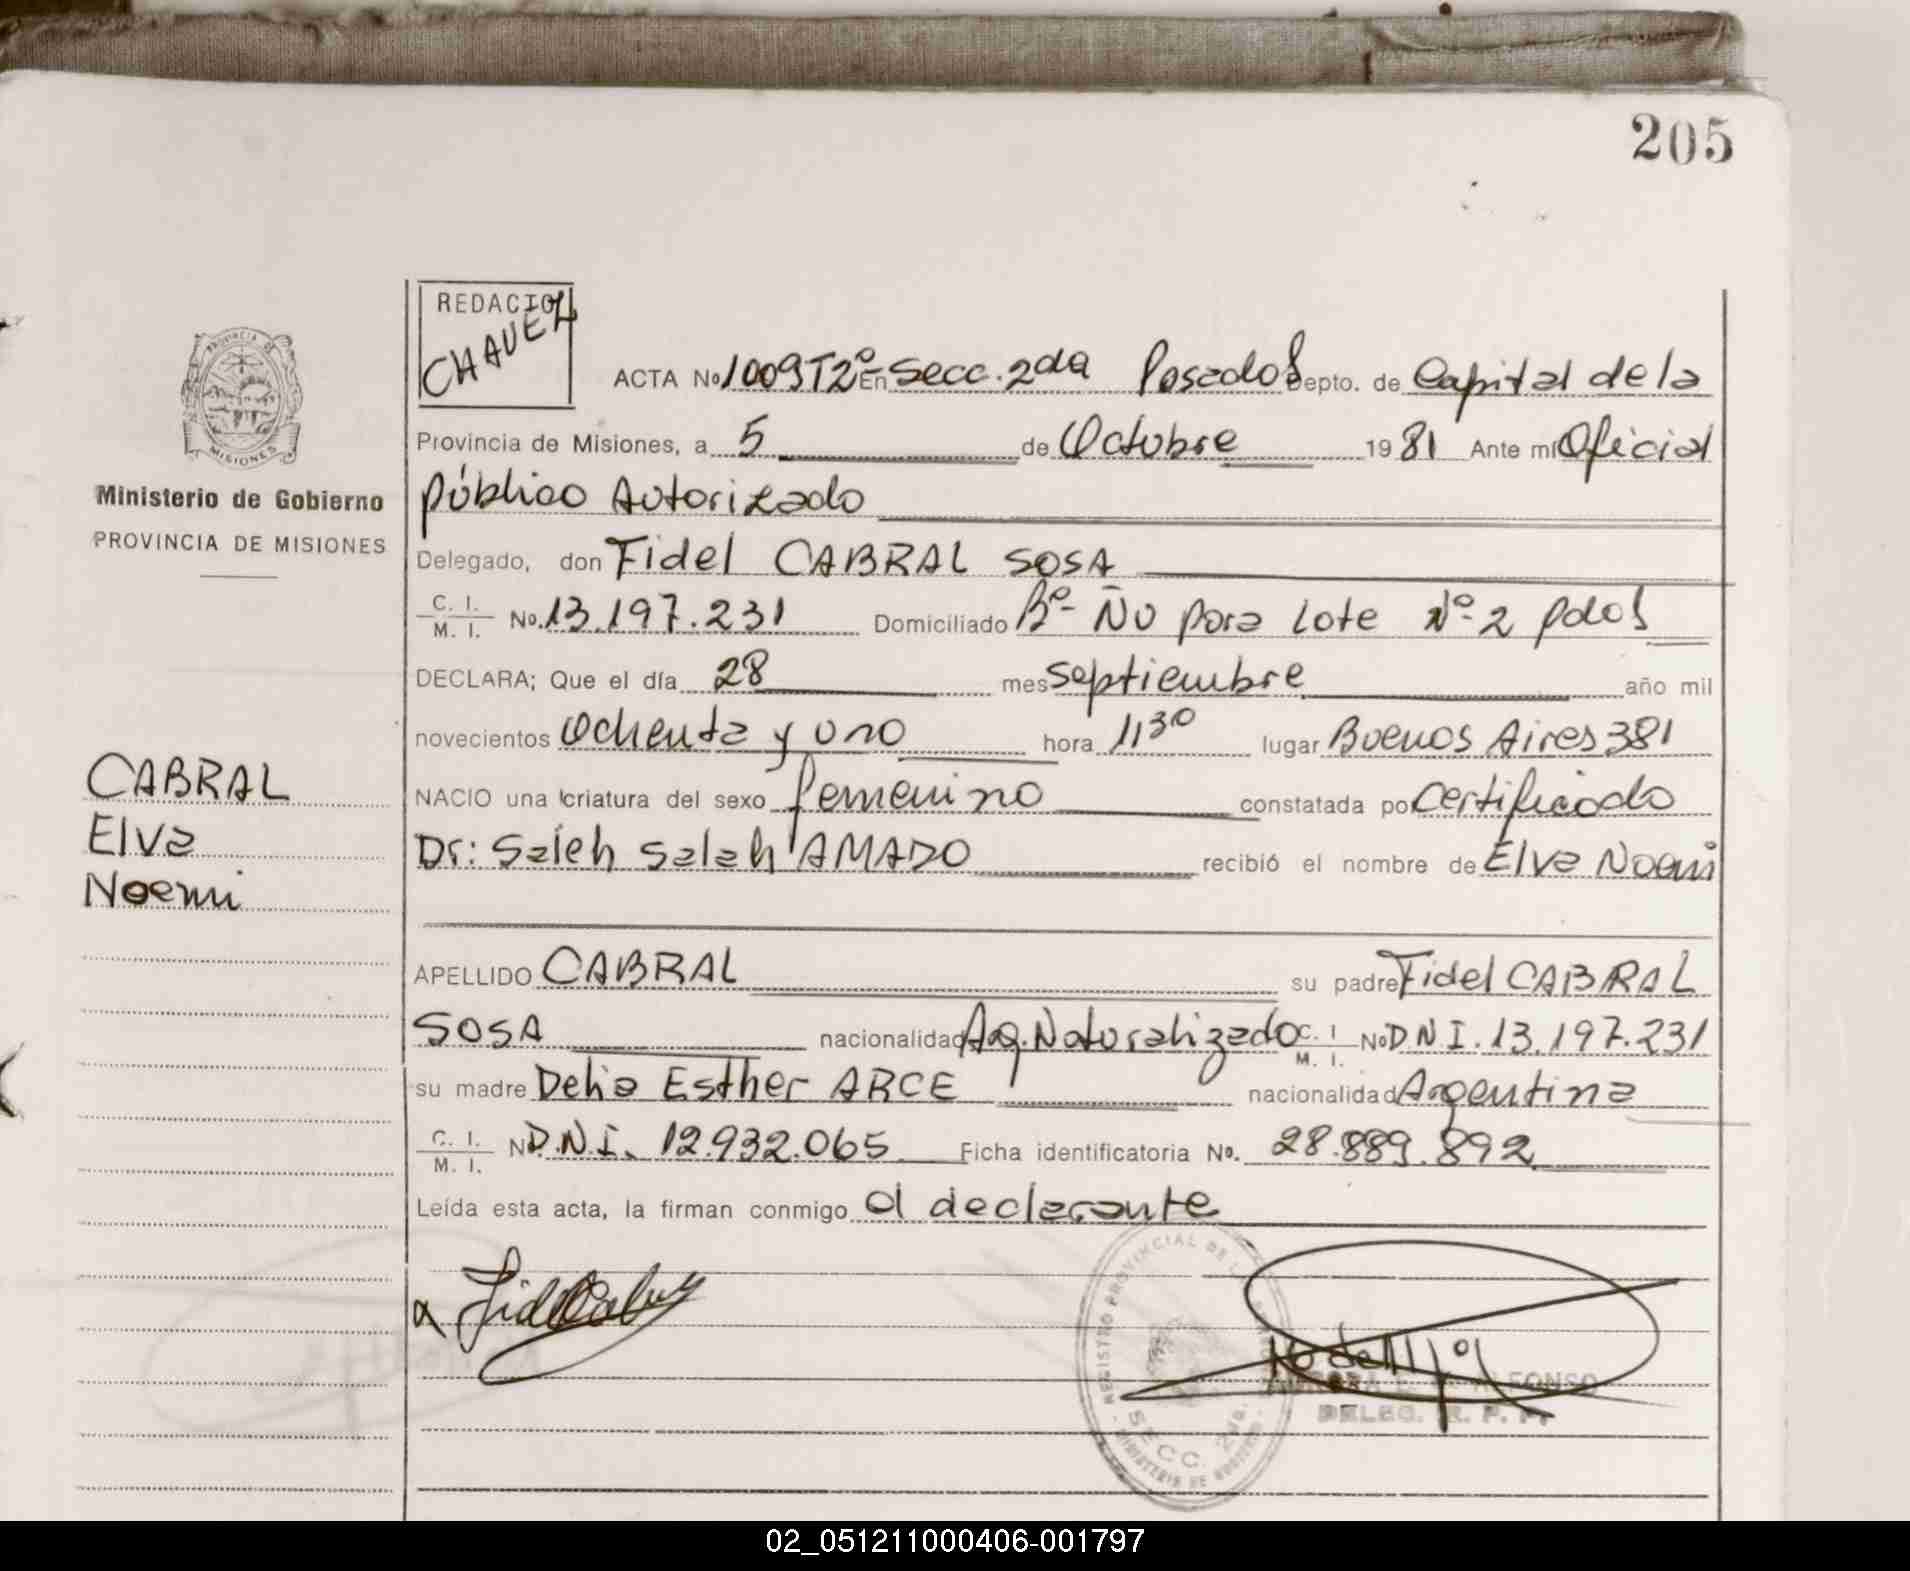 205
REDACTO
CHAVEZ
ACTA No 1009 T2º En Secc. 2da Posadas Depto. de Capital de la
Provincia de Misiones, a 5 de Octubre 1981 Ante mí Oficial
Público Autorizado
Delegado, don Fidel CABRAL SOSA
C. I.
M. I. No. 13.197.231 Domiciliado Bº- Ñu Pora Lote Nº-2 Pdas
DECLARA; Que el día 28 mes septiembre año mil
novecientos Ochenta y uno hora 11 30 lugar Buenos Aires 381
NACIO una criatura del sexo femenino constatada por Certificado
Dr: Saleh Salah AMADO recibió el nombre de Elva Noemi
APELLIDO CABRAL su padre Fidel CABRAL
SOSA nacionalidad Arg. Naturalizado C. I.
M. I. No D.N.I. 13.197.231
su madre Delia Esther ARCE nacionalidad Argentina
C. I.
M. I. N D.N.I. 12.932.065 Ficha identificatoria No. 28.889.892
Leída esta acta, la firman conmigo el declarante
PROVINCIA DE
MISIONES
Ministerio de Gobierno
PROVINCIA DE MISIONES
CABRAL
Elva
Noemi
REGISTRO PROVINCIAL DE L
SECC. 2da.
MINISTERIO DE GOBIERNO
ALFONSO
DELEG. R. P. P.
02_051211000406-001797